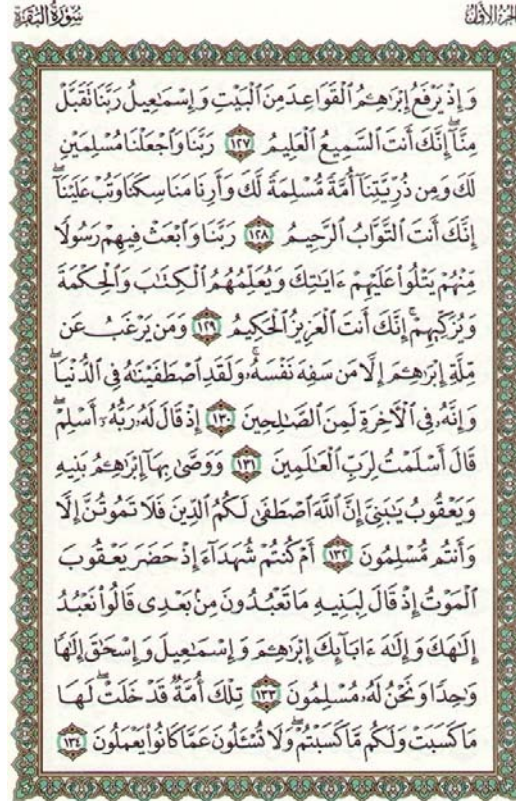 سُورَةُ البَقَرَةِ
الجُزْءُ الأَوَّلُ
وَإِذْ يَرْفَعُ إِبْرَٰهِـۧمُ ٱلْقَوَاعِدَ مِنَ ٱلْبَيْتِ وَإِسْمَـٰعِيلُ رَبَّنَا تَقَبَّلْ
مِنَّآ ۖ إِنَّكَ أَنتَ ٱلسَّمِيعُ ٱلْعَلِيمُ ١٢٧ رَبَّنَا وَٱجْعَلْنَا مُسْلِمَيْنِ
لَكَ وَمِن ذُرِّيَّتِنَآ أُمَّةً مُّسْلِمَةً لَّكَ وَأَرِنَا مَنَاسِكَنَا وَتُبْ عَلَيْنَآ ۖ
إِنَّكَ أَنتَ ٱلتَّوَّابُ ٱلرَّحِيمُ ١٢٨ رَبَّنَا وَٱبْعَثْ فِيهِمْ رَسُولًا
مِّنْهُمْ يَتْلُوا۟ عَلَيْهِمْ ءَايَـٰتِكَ وَيُعَلِّمُهُمُ ٱلْكِتَـٰبَ وَٱلْحِكْمَةَ
وَيُزَكِّيهِمْ ۚ إِنَّكَ أَنتَ ٱلْعَزِيزُ ٱلْحَكِيمُ ١٢٩ وَمَن يَرْغَبُ عَن
مِّلَّةِ إِبْرَٰهِـۧمَ إِلَّا مَن سَفِهَ نَفْسَهُۥ ۚ وَلَقَدِ ٱصْطَفَيْنَـٰهُ فِى ٱلدُّنْيَا ۖ
وَإِنَّهُۥ فِى ٱلْـَٔاخِرَةِ لَمِنَ ٱلصَّـٰلِحِينَ ١٣٠ إِذْ قَالَ لَهُۥ رَبُّهُۥٓ أَسْلِمْ ۖ
قَالَ أَسْلَمْتُ لِرَبِّ ٱلْعَـٰلَمِينَ ١٣١ وَوَصَّىٰ بِهَآ إِبْرَٰهِـۧمُ بَنِيهِ
وَيَعْقُوبُ يَـٰبَنِىَّ إِنَّ ٱللَّهَ ٱصْطَفَىٰ لَكُمُ ٱلدِّينَ فَلَا تَمُوتُنَّ إِلَّا
وَأَنتُم مُّسْلِمُونَ ١٣٢ أَمْ كُنتُمْ شُهَدَآءَ إِذْ حَضَرَ يَعْقُوبَ
ٱلْمَوْتُ إِذْ قَالَ لِبَنِيهِ مَا تَعْبُدُونَ مِنۢ بَعْدِى قَالُوا۟ نَعْبُدُ
إِلَـٰهَكَ وَإِلَـٰهَ ءَابَآئِكَ إِبْرَٰهِـۧمَ وَإِسْمَـٰعِيلَ وَإِسْحَـٰقَ إِلَـٰهًا
وَٰحِدًا وَنَحْنُ لَهُۥ مُسْلِمُونَ ١٣٣ تِلْكَ أُمَّةٌ قَدْ خَلَتْ ۖ لَهَا
مَا كَسَبَتْ وَلَكُم مَّا كَسَبْتُمْ ۖ وَلَا تُسْـَٔلُونَ عَمَّا كَانُوا۟ يَعْمَلُونَ ١٣٤